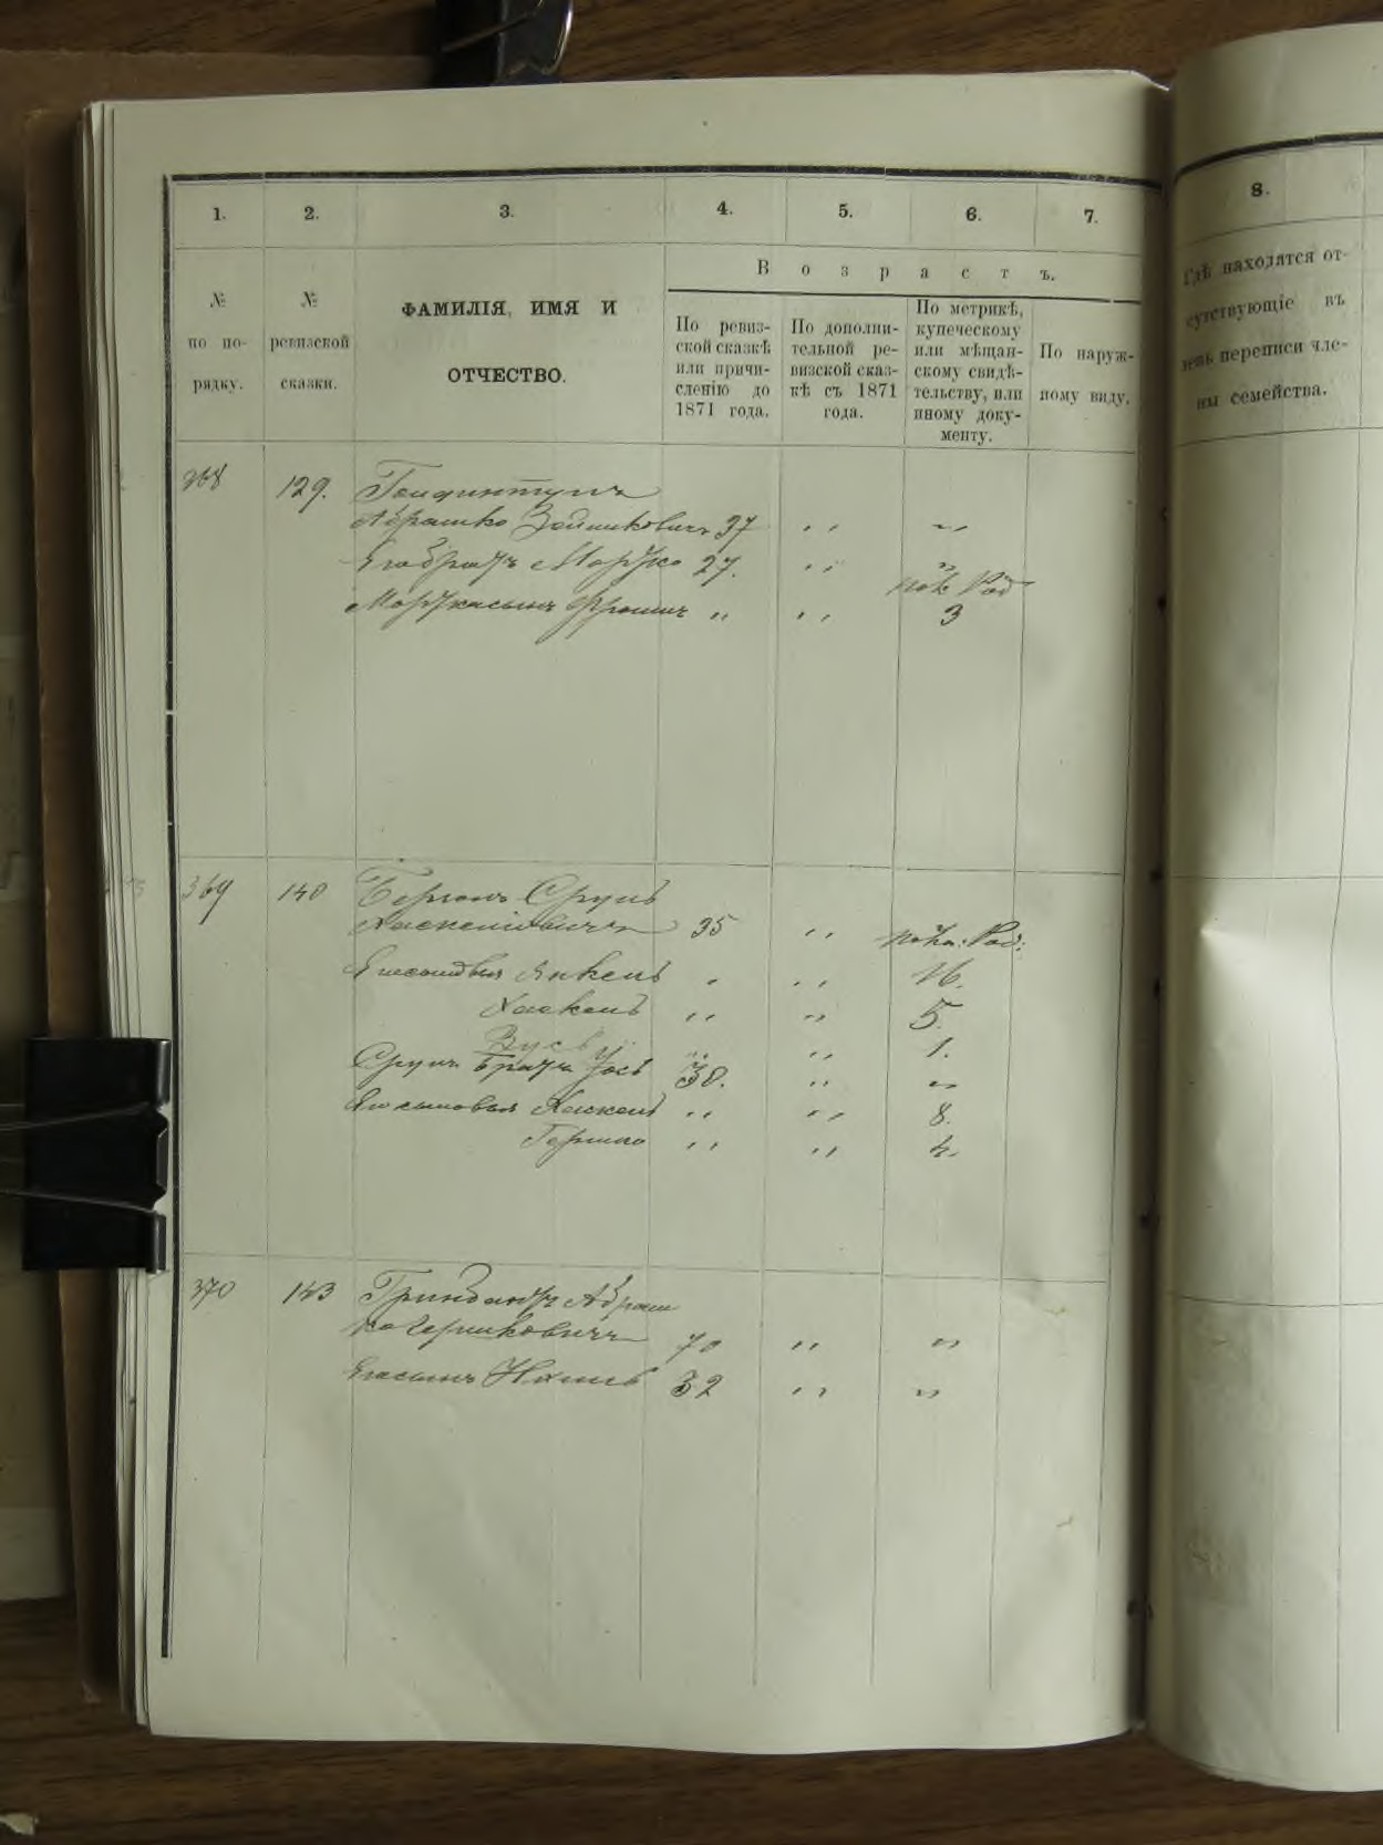 1. 2. 3. 4. 5. 6. 7.
8.
В о з р а с т ъ.
№ по по-рядку.
№ ревизской сказки.
ФАМИЛІЯ, ИМЯ И
ОТЧЕСТВО.
По ревиз-
ской сказкѣ
или причи-
сленію до
1871 года.
По дополни-
тельной ре-
визской сказ-
кѣ съ 1871
года.
По метрикѣ,
купеческому
или мѣщан-
скому свидѣ-
тельству, или
иному доку-
менту.
По наруж-
ному виду.
Гдѣ находятся от-
сутствующіе въ
день переписи чле-
ны семейства.
368 129.
Абрашко 37 " "
Его братъ Моржко 27. " "
Моржкасынъ " " 3
369 140 Берманъ Сруль
Хаскелевичъ 35 "
Его сыновья Янкель " " 16.
Хаскель " " 5.
Зусь " " 1.
Сруля братъ Іось 30. " "
Его сыновья Хаскель " " 8.
Гершко " " 4.
370 143 Абраш
ко Гершковичъ 70 " "
Его сынъ 32 " "